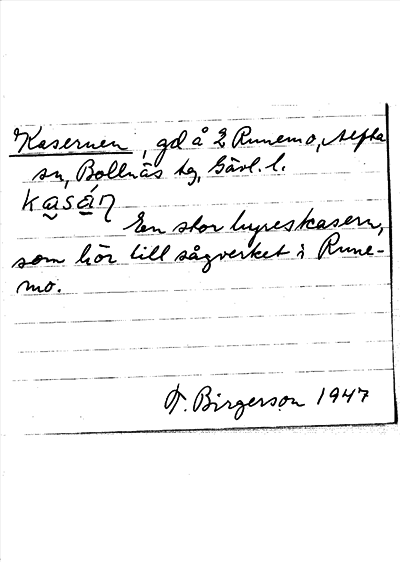 Kasernen, gd å 2 Runemo, Alfta
sn, Bollnäs tg, Gävl. l.
kasáη
En stor hyreskasern,
som hör till sågverket i Rune-
mo.
F. Birgerson 1947